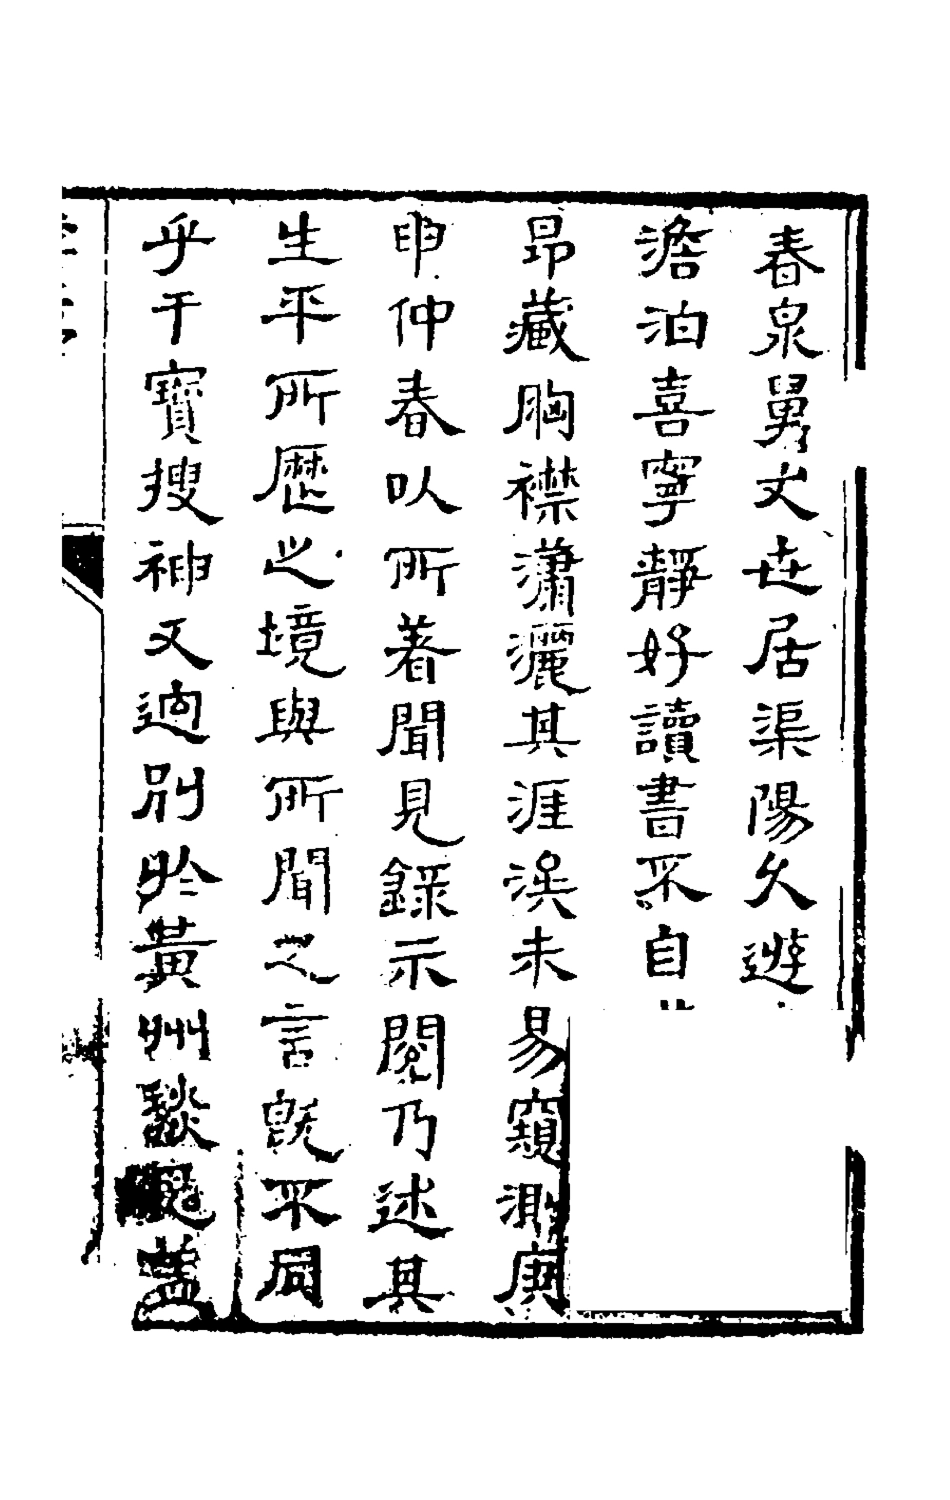 春泉舅丈世居渠陽久遊
澹泊喜寧靜好讀書不自
昻藏胸襟瀟灑其涯涘未易窺測庚
申仲春以所著聞見録示閱乃述其
生平所歷之境與所聞之言旣不同
乎干寶搜神又逈别於黃州談鬼蓋